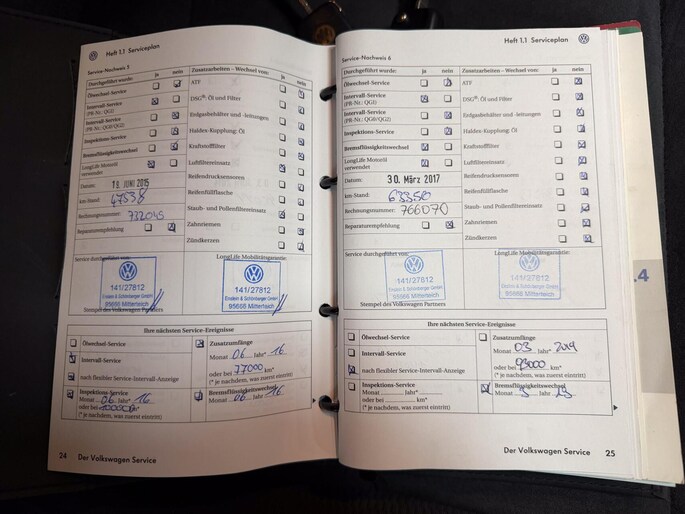 Heft 1.1 Serviceplan
Service-Nachweis 5
Durchgeführt wurde: ja nein
Ölwechsel-Service
Intervall-Service
(PR-Nr.: QG1)
Intervall-Service
(PR-Nr.: QG0/QG2)
Inspektions-Service
Bremsflüssigkeitswechsel
LongLife Motoröl
verwendet
Datum: 18. JUNI 2015
km-Stand: 47538
Rechnungsnummer: 732045
Reparaturempfehlung
Zusatzarbeiten - Wechsel von: ja nein
ATF
DSG®: Öl und Filter
Erdgasbehälter und -leitungen
Haldex-Kupplung: Öl
Kraftstofffilter
Luftfiltereinsatz
Reifendrucksensoren
Reifenfüllflasche
Staub- und Pollenfiltereinsatz
Zahnriemen
Zündkerzen
Service durchgeführt von:
LongLife Mobilitätsgarantie:
141/27812
95666 Mitterteich
141/27812
95666 Mitterteich
Stempel des Volkswagen Partners
Ihre nächsten Service-Ereignisse
Ölwechsel-Service
Intervall-Service
nach flexibler Service-Intervall-Anzeige
Inspektions-Service
Monat 06 Jahr* 16
oder bei km*
(* je nachdem, was zuerst eintritt)
Zusatzumfänge
Monat 06 Jahr* 16
oder bei 77000 km*
(* je nachdem, was zuerst eintritt)
Bremsflüssigkeitswechsel
Monat 06 Jahr 16
24 Der Volkswagen Service
Heft 1.1 Serviceplan
Service-Nachweis 6
Durchgeführt wurde: ja nein
Ölwechsel-Service
Intervall-Service
(PR-Nr.: QG1)
Intervall-Service
(PR-Nr.: QG0/QG2)
Inspektions-Service
Bremsflüssigkeitswechsel
LongLife Motoröl
verwendet
Datum: 30. März 2017
km-Stand: 63350
Rechnungsnummer: 766070
Reparaturempfehlung
Zusatzarbeiten - Wechsel von: ja nein
ATF
DSG®: Öl und Filter
Erdgasbehälter und -leitungen
Haldex-Kupplung: Öl
Kraftstofffilter
Luftfiltereinsatz
Reifendrucksensoren
Reifenfüllflasche
Staub- und Pollenfiltereinsatz
Zahnriemen
Zündkerzen
Service durchgeführt von:
LongLife Mobilitätsgarantie:
141/27812
95666 Mitterteich
141/27812
95666 Mitterteich
Stempel des Volkswagen Partners
Ihre nächsten Service-Ereignisse
Ölwechsel-Service
Intervall-Service
nach flexibler Service-Intervall-Anzeige
Inspektions-Service
Monat Jahr*
oder bei km*
(* je nachdem, was zuerst eintritt)
Zusatzumfänge
Monat 03 Jahr* 2019
oder bei 93000 km*
(* je nachdem, was zuerst eintritt)
Bremsflüssigkeitswechsel
Monat 3 Jahr 19
Der Volkswagen Service 25
.4